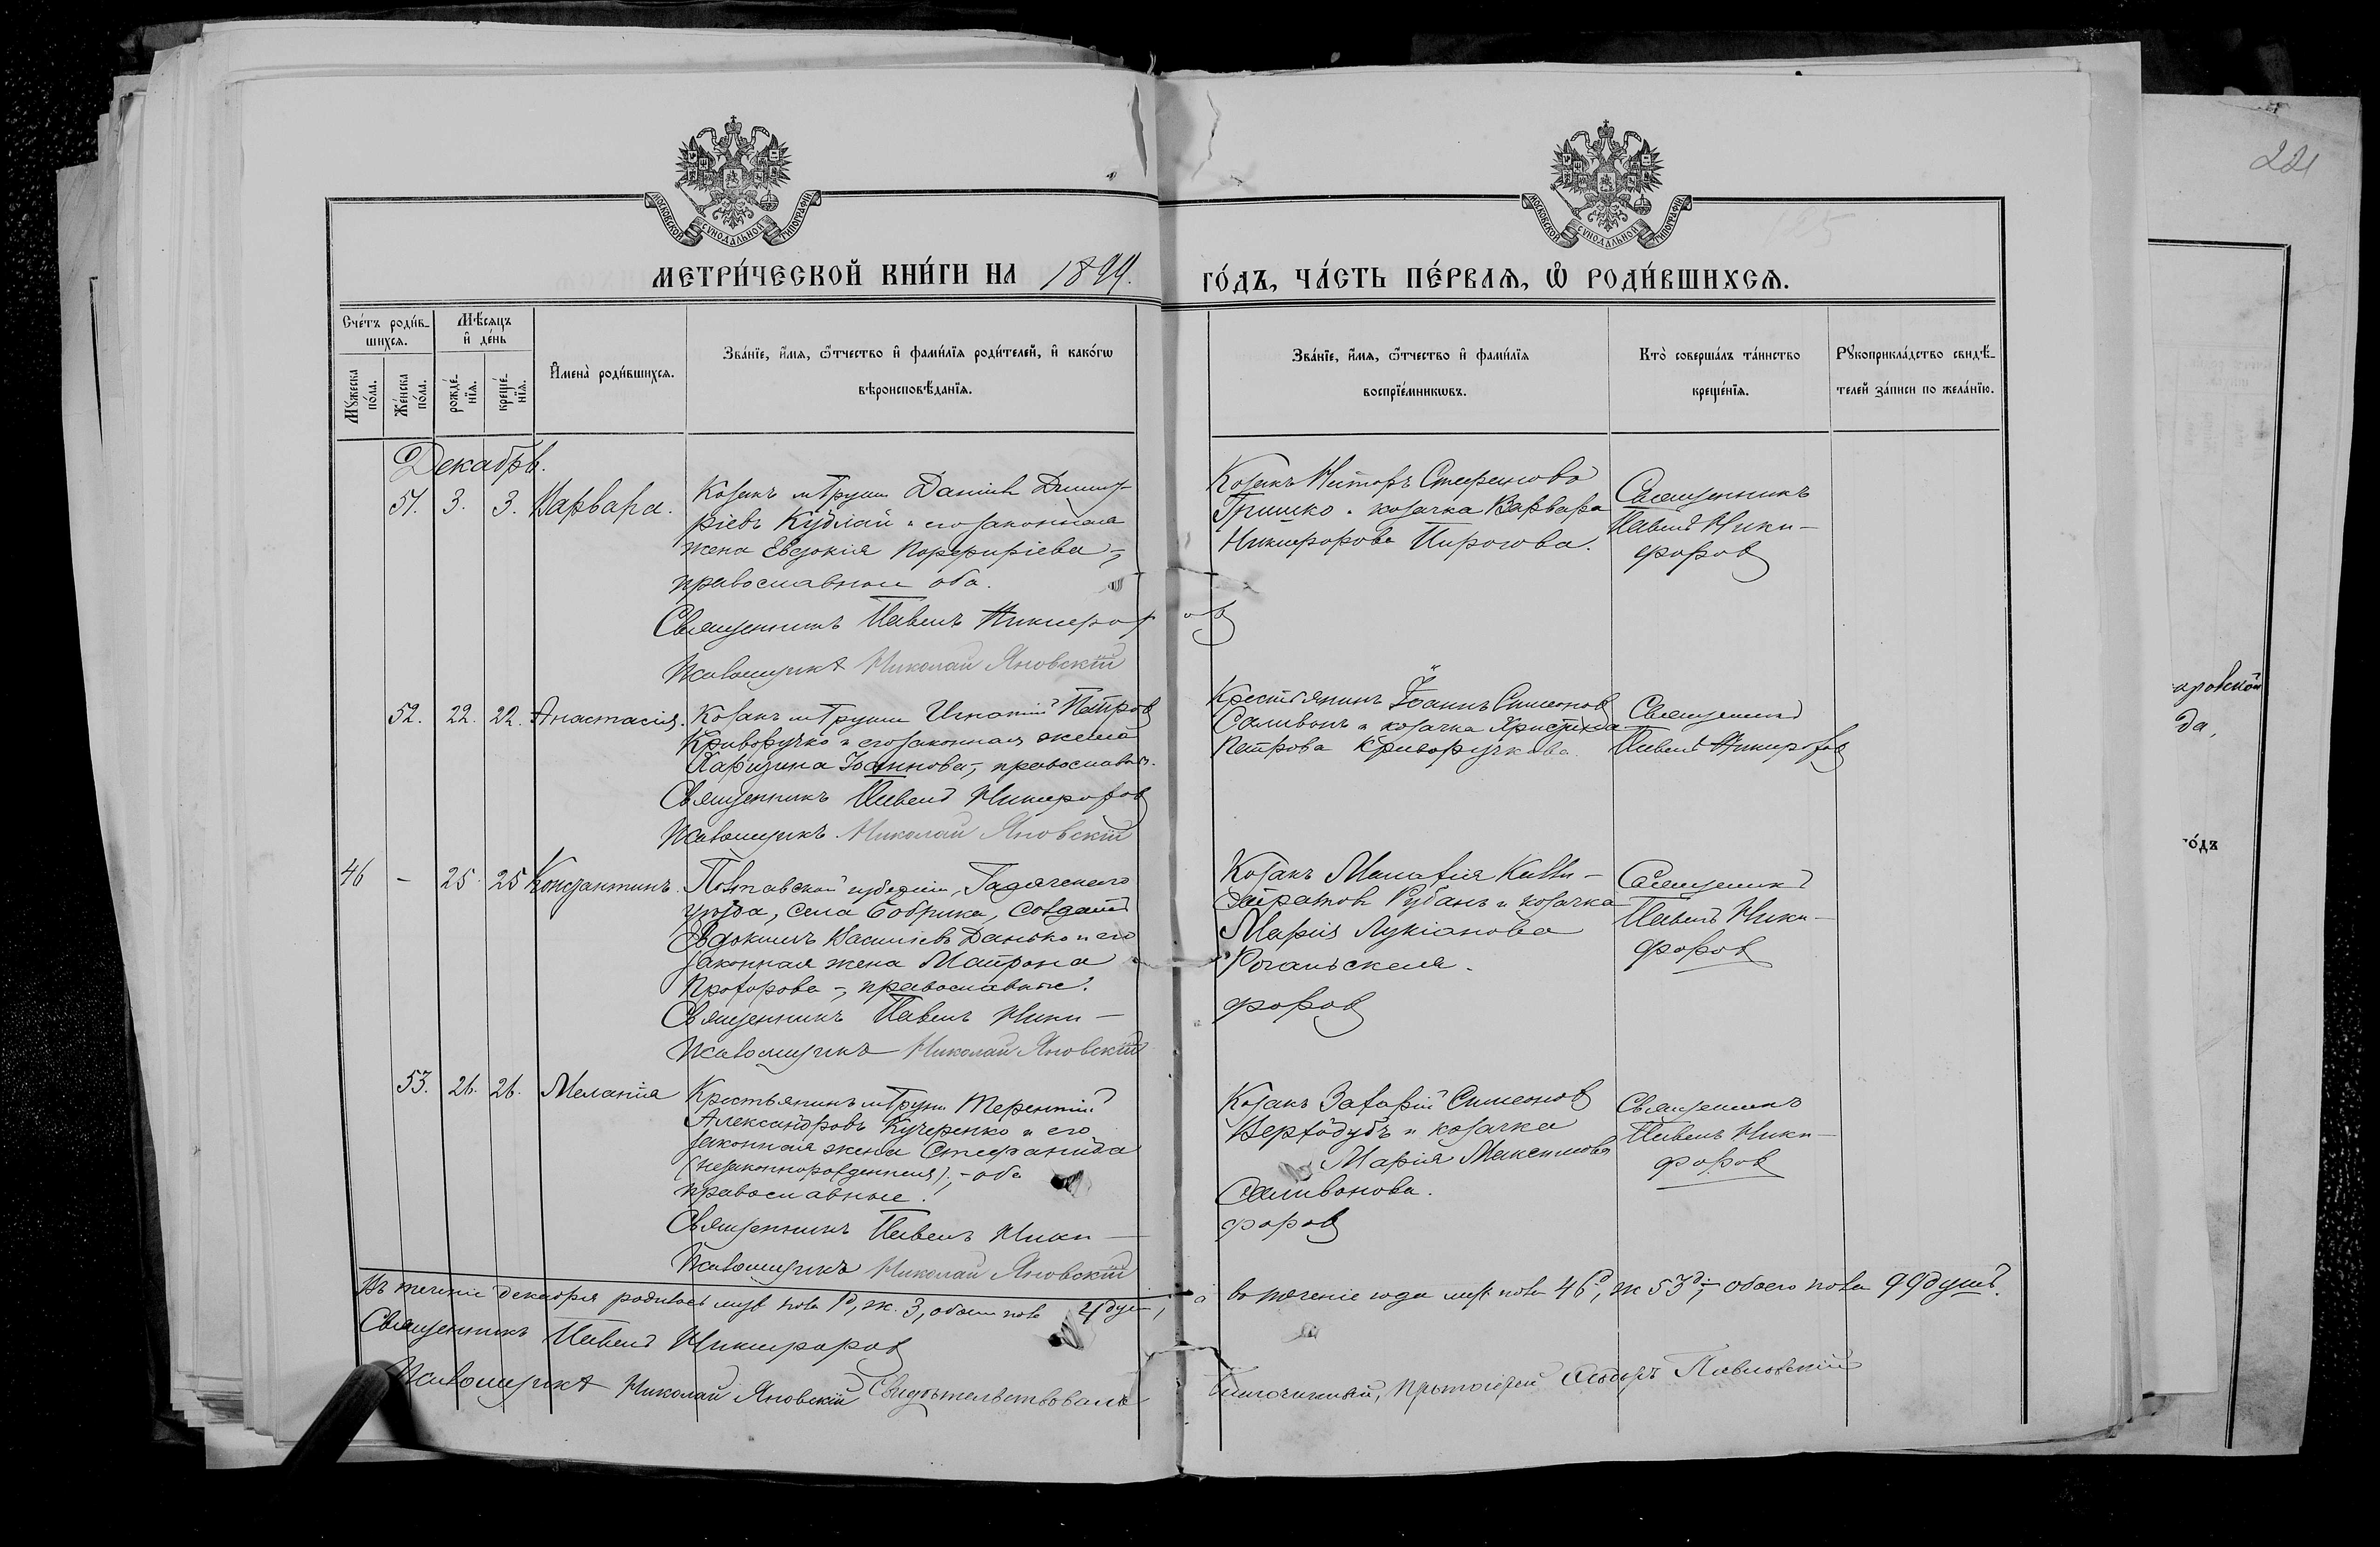 221
МОСКОВСКОЙ СУНОДАЛЬНОЙ ТИПОГРАФІИ
МОСКОВСКОЙ СУНОДАЛЬНОЙ ТИПОГРАФІИ
МЕТРИ́ЧЕСКОЙ КНИ́ГИ НА 1899.
ГО́ДЪ, ЧА́СТЬ ПЕ́РВАѦ, Ѽ РОДИ́ВШИХСѦ.
Сче́тъ роди́в-
шихсѧ.
Мꙋ́жеска
по́ла.
Же́нска
по́ла.
Мѣ́сѧцъ
и҆ де́нь
рожде́-
нїѧ.
креще́-
нїѧ.
И҆мена̀ роди́вшихсѧ.
Зва́нїе, и҆́мѧ, ѻ҆́тчество и҆ фами́лїѧ роди́телей, и҆ како́гѡ
вѣроисповѣ́данїѧ.
Зва́нїе, и҆́мѧ, ѻ҆́тчество и҆ фами́лїѧ
воспрїе́мникѡвъ.
Кто̀ соверша́лъ та́инство
креще́нїѧ.
Рꙋкоприкла́дство свидѣ́-
телей за́писи по жела́нїю.
Декабрь.
51. 3. 3. Варвара.
Козакъ м Груни Даніилъ Димит-
ріевъ Кудлай и его законная
жена Евдокія Порфиріева -,
православные оба.
Священникъ Павелъ Никифоров
Псаломщикъ Николай Яновскій
Козакъ Никторъ Стефановъ
Гришко и козачка Варвара
Никифорова Пирогова.
Священникъ
Павелъ Ники-
форов
52. 22. 22. Анастасія.
Козакъ м Груни Игнатій Петров
Криворучко и его законная жена
Харитина Іоаннова -, православн.
Священникъ Павелъ Никифоров
Псаломщикъ Николай Яновскій
Крестьянинъ Іоаннъ Симеонов
Саливонъ и козачка Христина
Петрова Криворучкова.
Священникъ
Павелъ Никифоров
46 - 25. 25 Константинъ.
Полтавской губерніи, Гадячского
уѣзда, села Бобрика, солдатъ
Евдокимъ Василіевъ Данько и его
законная жена Матрона
Прохорова -, православные.
Священникъ Павелъ Ники-
Псаломщикъ Николай Яновскій
Козакъ Калли-
стратов Рубанъ и козачка
Марія Лукіанова
форов
Священникъ
Павелъ Ники-
форов
53. 26. 26. Меланія
Крестьянинъ м Груни Терентій
Александровъ Кучеренко и его
законная жена Стефанида
(незаконнорожденная); - оба
православные.
Священникъ Павелъ Ники-
Псаломщикъ Николай Яновскій
Козакъ Захарій Симеонов
Верходубъ и козачка
Марія Максимова
Саливонова.
форов
Священникъ
Павелъ Ники-
форов
Въ теченіе декабря родилось муж пола 1д, ж. 3, обоего пола 4 душ,
а въ теченіе года муж пола 46д, ж 53д; - обоего пола 99 душъ.
Священникъ Павелъ Никифоров
Псаломщикъ Николай Яновскій
Свидѣтельствовалъ
Благочинный, Протоіерей Павловскій
да,
го́дъ